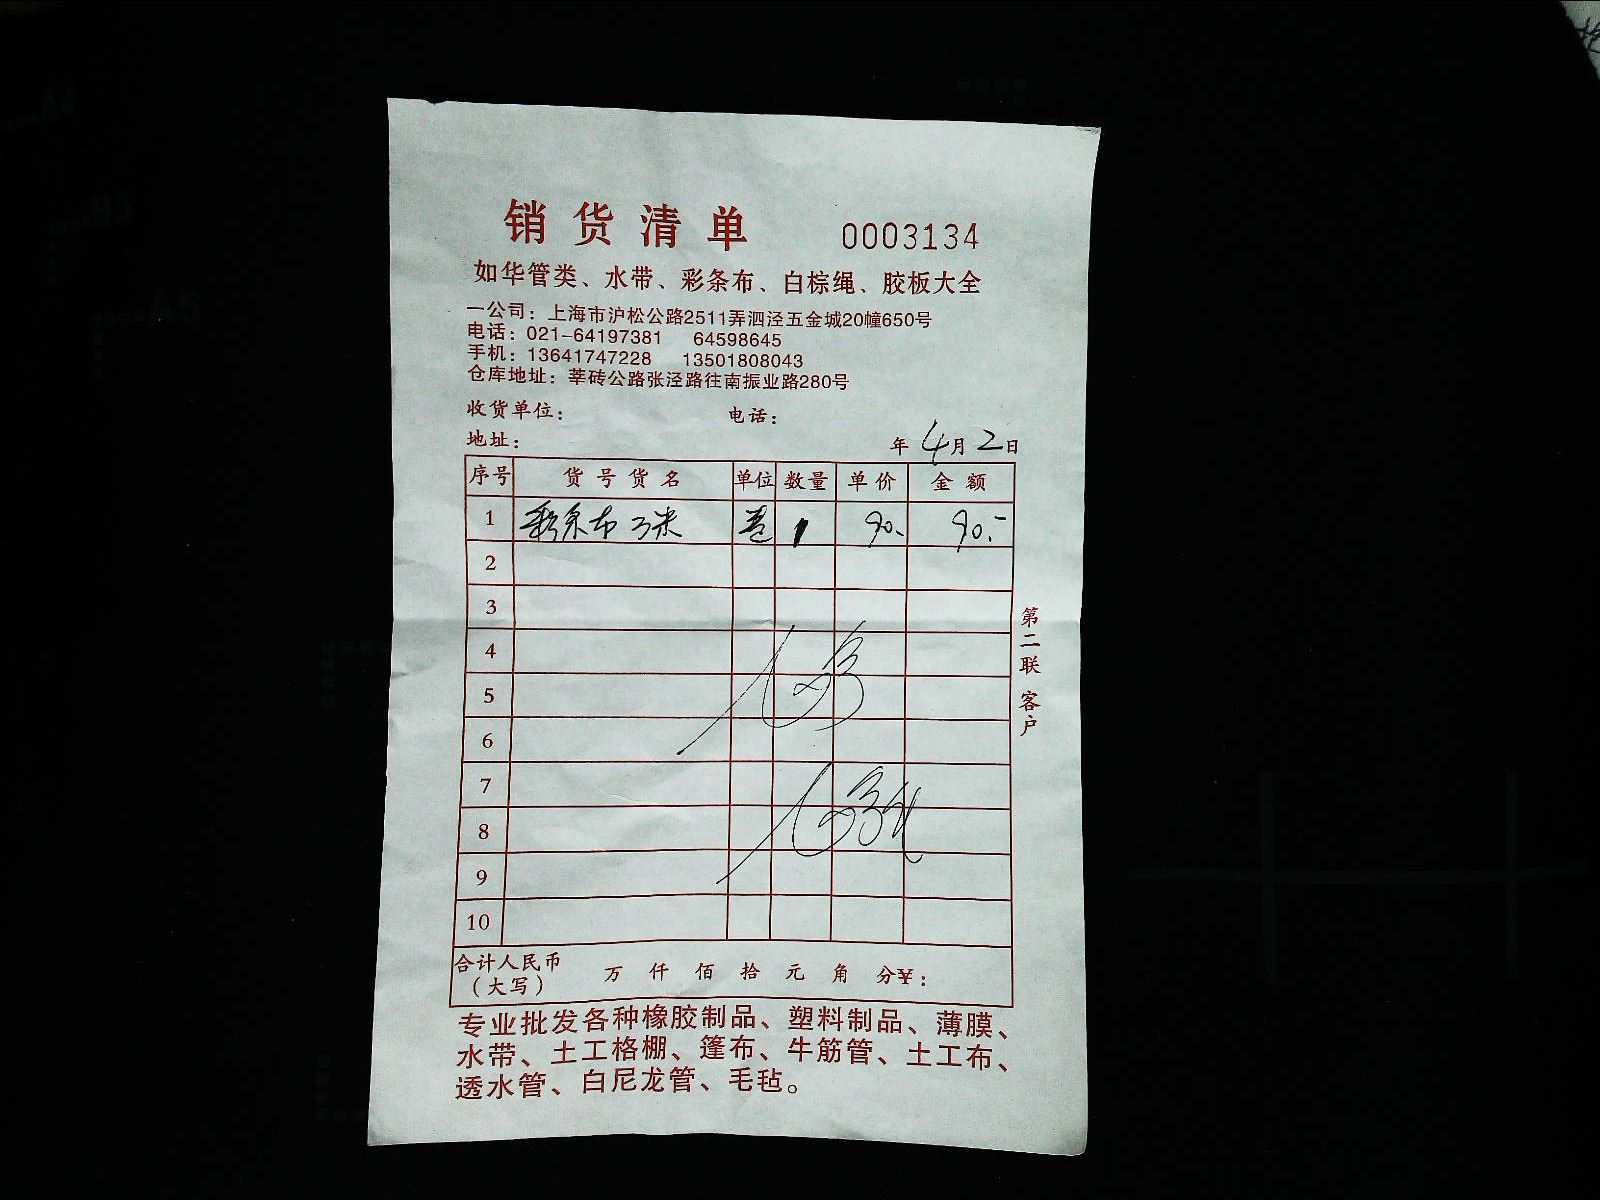 销货清单 0003134
如华管类、水带、彩条布、白棕绳、胶板大全
一公司：上海市沪松公路2511弄泗泾五金城20幢650号
电话：021-64197381 64598645
手机：13641747228 13501808043
仓库地址：莘砖公路张泾路往南振业路280号
收货单位： 电话：
地址： 年4月2日
序号 货号货名 单位 数量 单价 金额
1 彩条布 3米 卷 1 90.- 90.-
2
3
4
5
6
7
8
9
10
第二联 客户
合计人民币（大写） 万 仟 佰 拾 元 角 分¥：
专业批发各种橡胶制品、塑料制品、薄膜、
水带、土工格棚、篷布、牛筋管、土工布、
透水管、白尼龙管、毛毡。